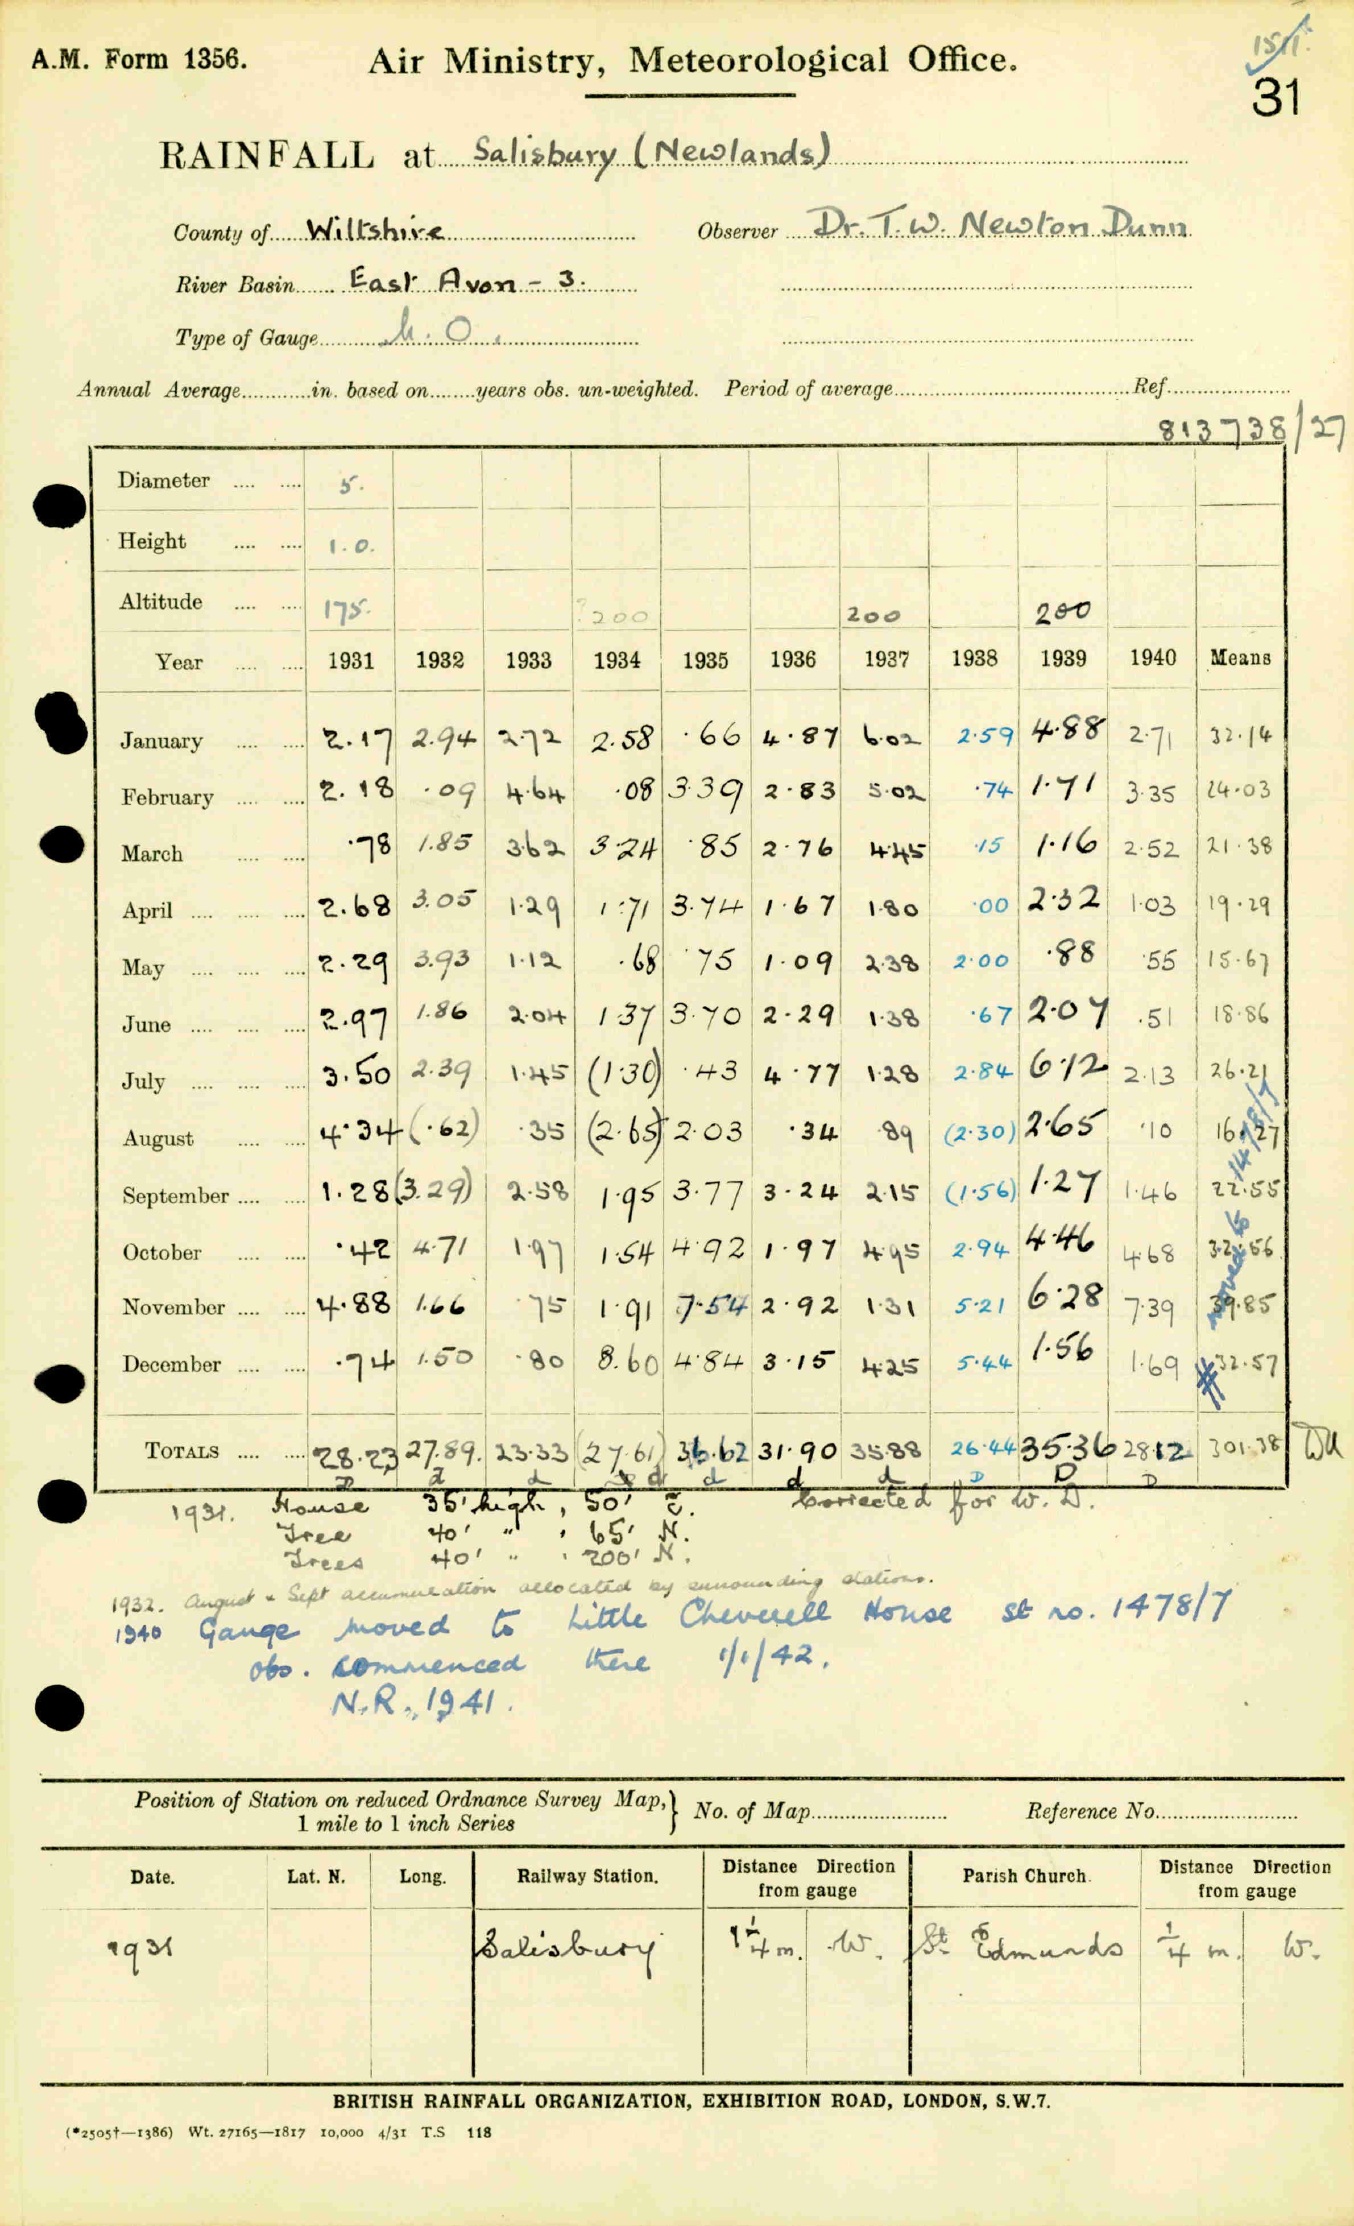 A.M. Form 1356. Air Ministry, Meteorological Office.
31
RAINFALL at Salisbury (Newlands)
County of Wiltshire Observer Dr. T. W. Newton Dunn
River Basin East Avon - 3.
Type of Gauge M.O.
Annual Average in. based on years obs. un-weighted. Period of average Ref.
813738/27
Diameter 5.
Height 1.0.
Altitude 175. ?200 200 200
Year 1931 1932 1933 1934 1935 1936 1937 1938 1939 1940 Means
January 2.17 2.94 2.72 2.58 .66 4.87 6.02 2.59 4.88 2.71 32.14
February 2.18 .09 4.64 .08 3.39 2.83 5.02 .74 1.71 3.35 24.03
March .78 1.85 3.62 3.24 .85 2.76 4.45 .15 1.16 2.52 21.38
April 2.68 3.05 1.29 1.71 3.74 1.67 1.80 .00 2.32 1.03 19.29
May 2.29 3.93 1.12 .68 .75 1.09 2.38 2.00 .88 .55 15.67
June 2.97 1.86 2.04 1.37 3.70 2.29 1.38 .67 2.07 .51 18.86
July 3.50 2.39 1.45 (1.30) .43 4.77 1.28 2.84 6.12 2.13 26.21
August 4.34 (.62) .35 (2.65) 2.03 .34 .89 (2.30) 2.65 .10 16.27
September 1.28 (3.29) 2.58 1.95 3.77 3.24 2.15 (1.56) 1.27 1.46 22.55
October .42 4.71 1.97 1.54 4.92 1.97 4.95 2.94 4.46 4.68 32.56
November 4.88 1.66 .75 1.91 7.54 2.92 1.31 5.21 6.28 7.39 39.85
December .74 1.50 .80 8.60 4.84 3.15 4.25 5.44 1.56 1.69 32.57
moved to 1478/7
TOTALS 28.23 27.89. 23.33 (27.61) 36.62 31.90 35.88 26.44 35.36 28.12 301.38
D d d d d d d D D D
1931. House 35' high, 50' E. Corrected for W. D.
Tree 40' " , 65' N.
Trees 40' " , 200' N.
1932. August & Sept accumulation allocated by surrounding stations.
1940 Gauge moved to Little Cheverell House st no. 1478/7
obs. commenced there 1/1/42.
N.R., 1941.
Position of Station on reduced Ordnance Survey Map, No. of Map Reference No.
1 mile to 1 inch Series
Date. Lat. N. Long. Railway Station. Distance Direction from gauge Parish Church. Distance Direction from gauge
1931 Salisbury 1 1/4 m. W. St Edmunds 1/4 m. W.
BRITISH RAINFALL ORGANIZATION, EXHIBITION ROAD, LONDON, S.W.7.
(*2505†—1386) Wt. 27165—1817 10,000 4/31 T.S 118